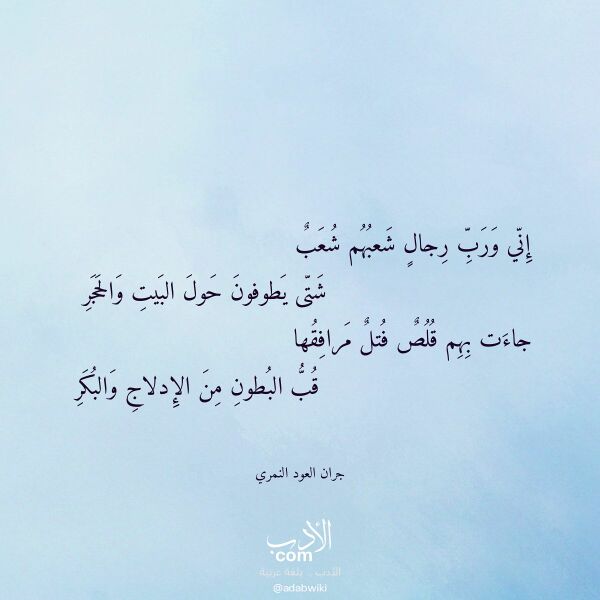 إِنّي وَرَبِّ رِجالٍ شَعبُهُم شُعَبٌ
شَتّى يَطوفونَ حَولَ البَيتِ وَالحَجَرِ
جاءَت بِهِم قُلُصٌ فُتلٌ مَرافِقُها
قُبُّ البُطونِ مِنَ الإِدلاجِ وَالبُكَرِ
جران العود النمري
الأدب
com
الأدب .. بلغة عربية
@adabwiki